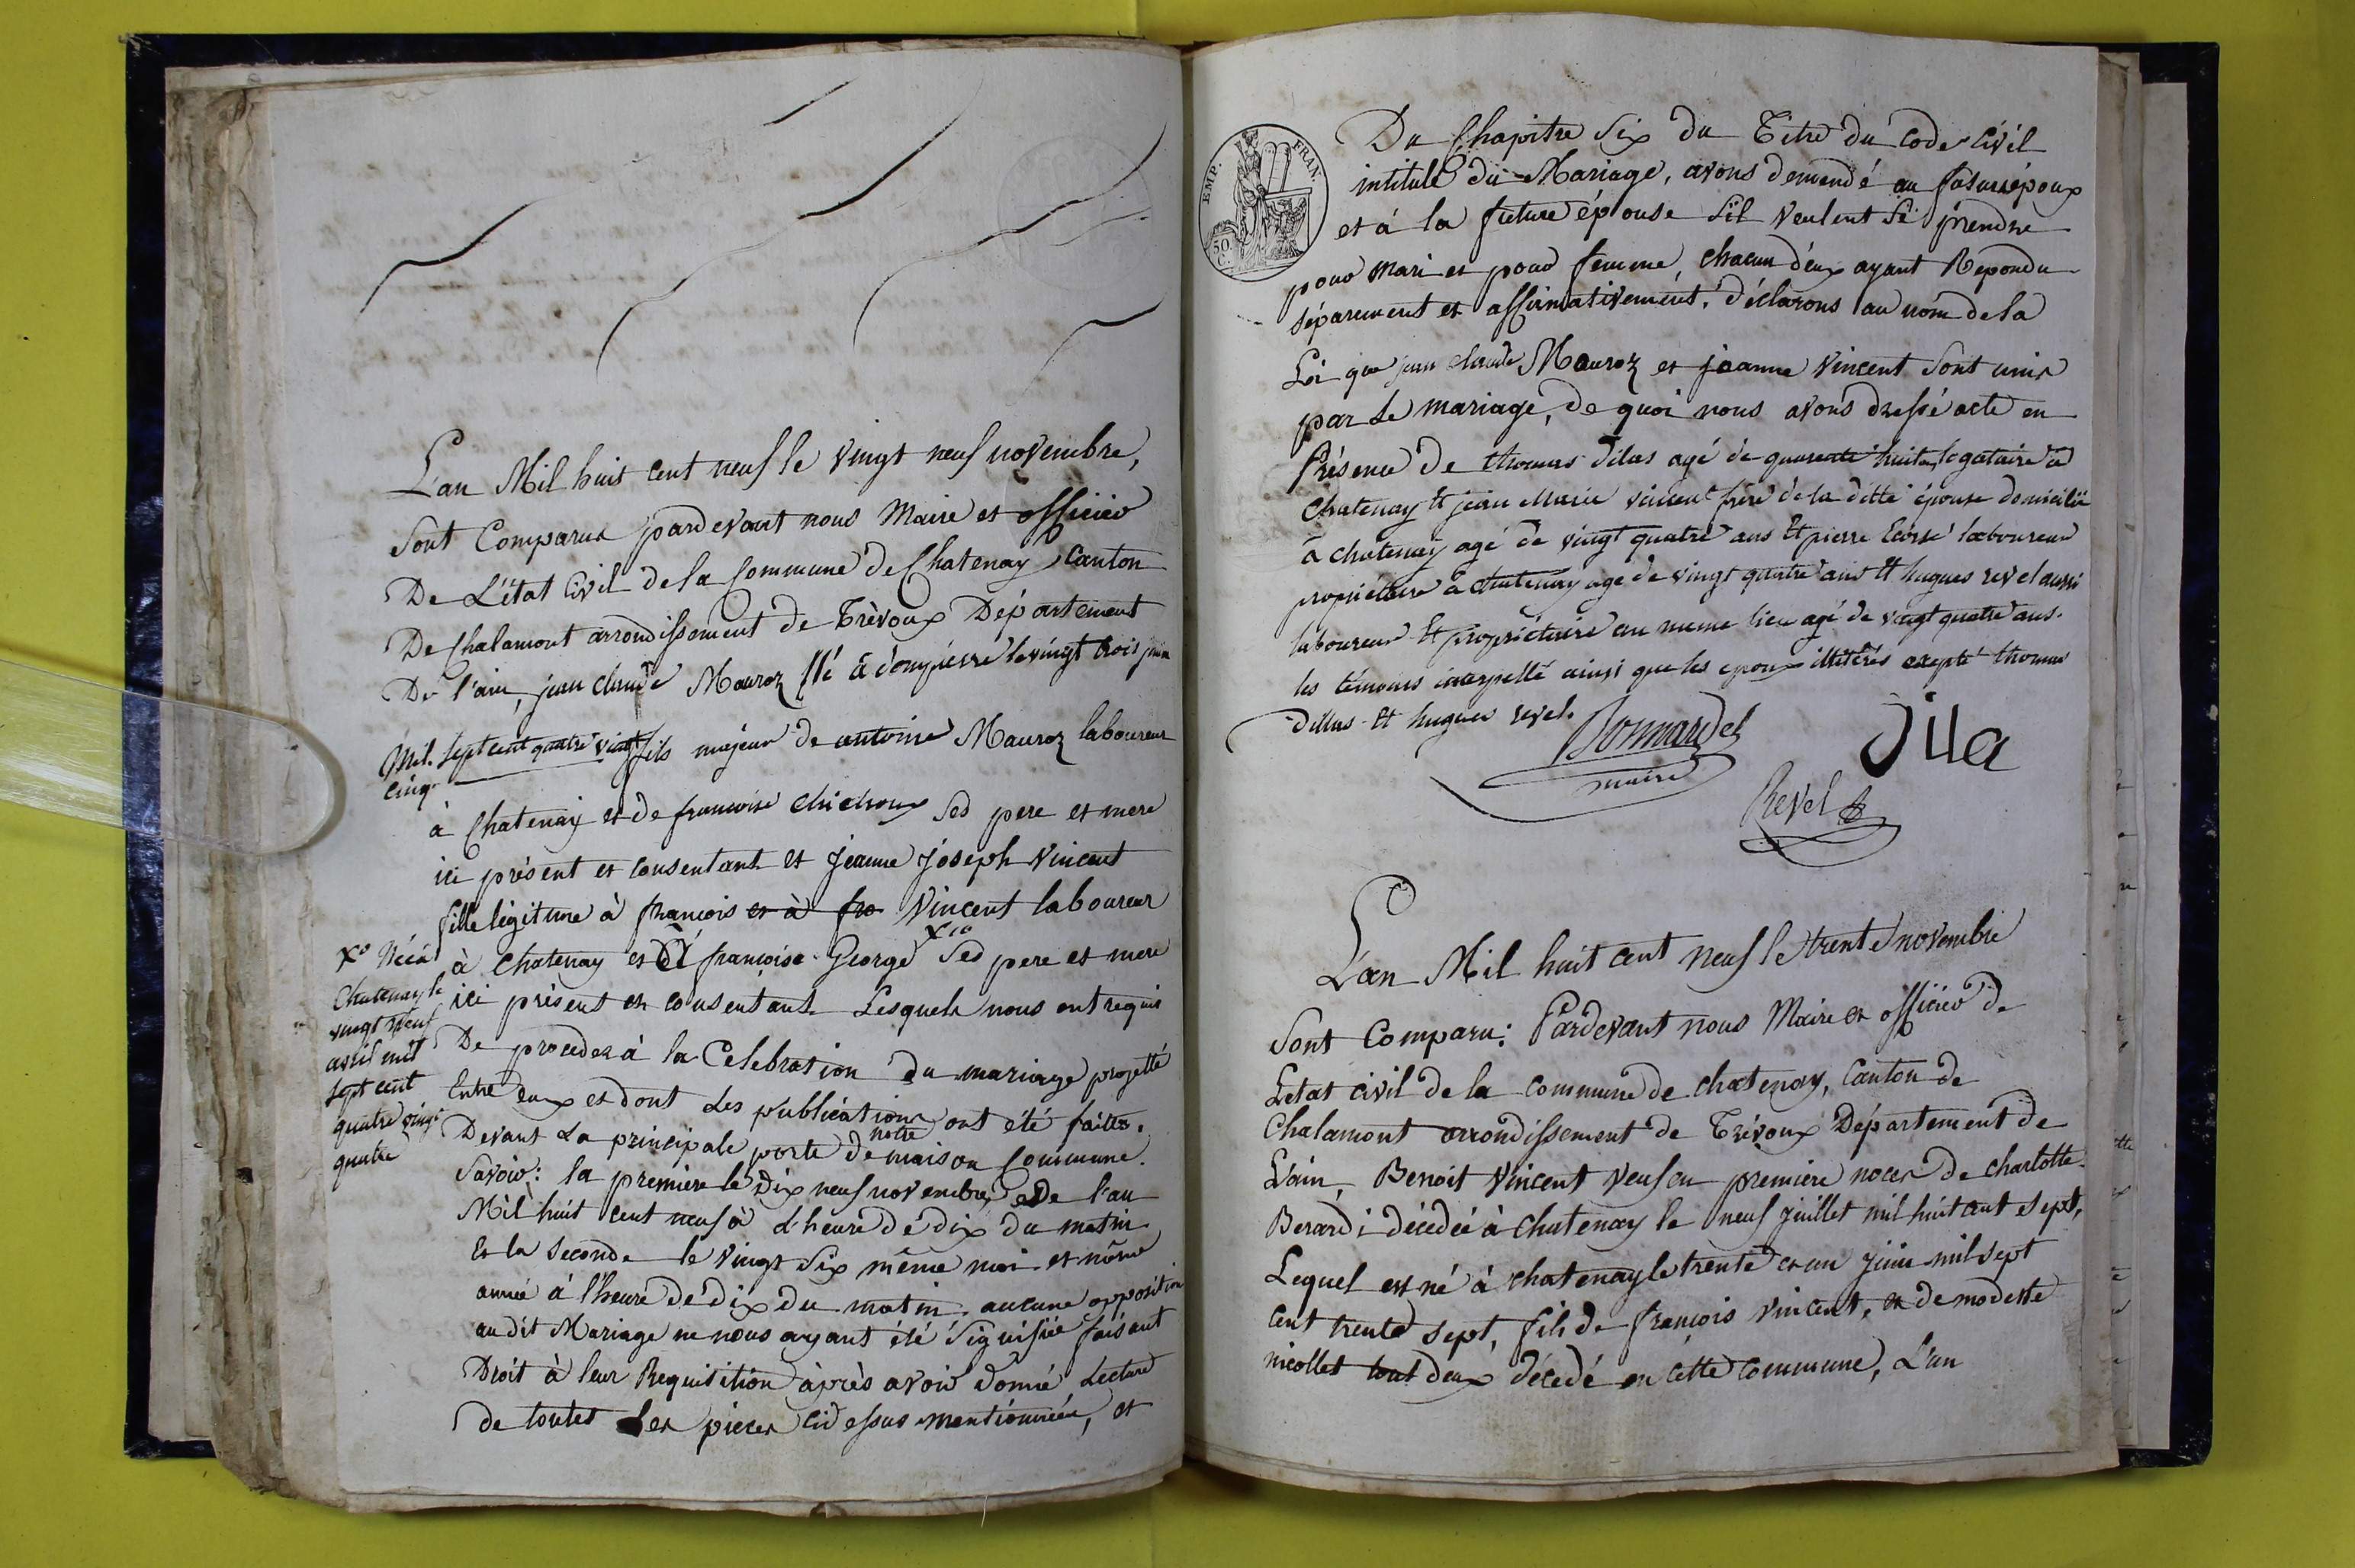 L'an Mil huit cent neuf le vingt neuf novembre,
Sont Comparus pardevant nous Maire et officier
De L'état Civil de la Commune de Chatenay Canton
De Chalamont arrondissement de Trévoux Département
De l'ain, jean claude Mauroz né à dompierre le vingt trois juin
Mil Sept cent quatre vingt fils majeur de antoine Mauroz laboureur
cinq
à Chatenay et de francoise chichoux Ses pere et mere
ici présent et consentant et jeanne joseph Vincent
fille légitime à francois et à fra Vincent laboureur
à Chatenay et de francoise George Ses pere et mere
ici présent et consentant Lesquels nous ont requis
De proceder à la Celebration du mariage projetté
Entre eux et dont les publications ont été faites.
Devant La principale porte de notre maison Commune.
Savoir: la premiere le Dix neuf novembre, de l'an
Mil huit cent neuf à L'heure de dix du matin
Et la Seconde le vingt Six même moi et même
année à l'heure de dix du matin. aucune opposition
audit Mariage ne nous ayant été Signifiée faisant
Droit à leur Requisition après avoir donné Lecture
de toutes Les pieces cidessus mentionnées, et
Xo Née à
Chatenay le
vingt neuf
avril mil
sept cent
quatre vingt
quatre
EMP. FRAN.
50 C.
Du Chapitre Six du Titre du code civil
intitulé du Mariage, avons demendé au futur époux
et à la future épouse S'il veulent Se prendre
pour mari et pour femme, chacun d'eux ayant Repondu
séparement et affirmativement. déclarons au nom de la
Loi que jean claude Mauroz et jeanne Vincent Sont unis
par Le mariage, de quoi nous avons dressé acte en
Présence de thomas dilas agé de quarente huit
Chatenay Et jean Marie vincent frère de la ditte épouse domicilié
à chatenay agé de vingt quatre ans Et pierre laboureur
propriétaire à Chatenay age de vingt quatre ans Et hugues revel aussi
laboureur Et propriétaire au meme lieu agé de vingt quatre ans.
les témoins interpellé ainsi que les epoux illitérés excepté thomas
dillas Et hugues revel.
Bonnardel
maire
Dila
Revel
L'an Mil huit cent neuf le trente novembre
Sont Comparu: Pardevant nous Maire et officier de
L'etat civil de la commune de chatenay, Canton de
Chalamont arrondissement de Trévoux Département de
L'ain, Benoit Vincent veuf en premiere noces de charlotte
Berardi décedée à chatenay le neuf juillet mil huit cent sept,
Lequel est né à chatenay le trente et un juin mil sept
cent trente sept, fils de françois vincent, et de modeste
nicollet tout deux décedé en cette commune, L'an